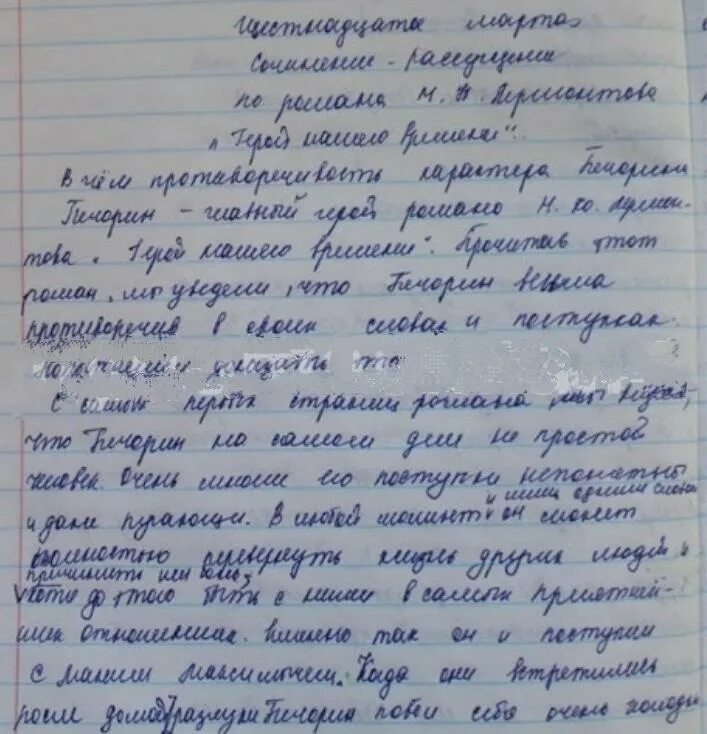 Шестнадцатое марта
Сочинение - рассуждение
по романа М. Ю. Лермонтова
„Герой нашего времени".
В чём противоречивость характера Печорина
Печорин - главный герой романа М. Ю. Лермон-
това „Герой нашего времени". Прочитав этот
роман, мы увидели, что Печорин весьма
противоречив в своих словах и поступках.
доказать это
С самых первых страниц романа мы
что Печорин на самом деле не простой
человек. Очень многие его поступки непонятны
и даже пугающи. В любой момент он сможет
и лишь одним словом
полностью перевернуть жизнь других людей и
причинить им боль,
хотя до этого быть с ними в самых приятней-
ших отношениях. Именно так он и поступил
с Максим Максимычем. Когда они встретились
после долгой разлуки Печорин повёл себя очень холодно